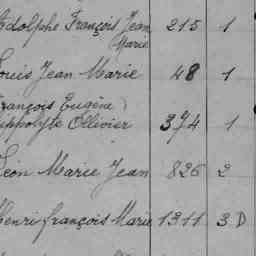 Adolphe François Jean 215 1
Marie
Louis Jean Marie 48 1
François Eugène
Hippolyte Ollivier 374 1
Léon Marie Jean 826 2
Henri François Marie 1311 3 D